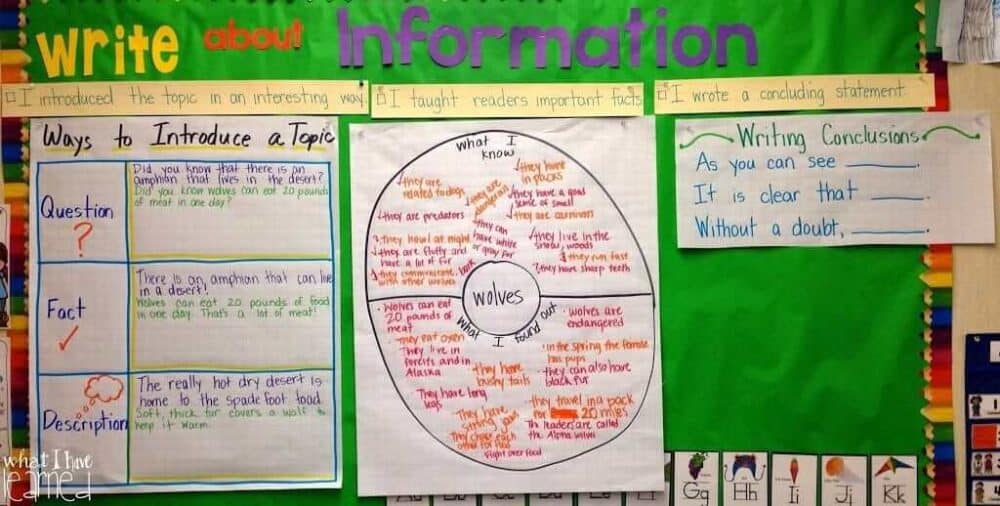 Write about Information
I introduced the topic in an interesting way.
I taught readers important facts
I wrote a concluding statement
Ways to Introduce a Topic
Question
?
Did you know that there is an
amphian that lives in the desert?
Did you know wolves can eat 20 pounds
of meat in one day?
Fact
There is an amphian that can live
in a desert!
Wolves can eat 20 pounds of food
in one day. That's a lot of meat!
Description
The really hot dry desert is
home to the spade foot toad.
Soft, thick fur covers a wolf to
keep it warm.
What I
know
they are
related to dogs
they are
dangerous
they have
in packs
they have a good
sense of smell
they are predators
they are carnivors
they can
have white
or gray fur
? they howl at night
they are fluffy and
have a lot of fur
they communicate
with other wolves
bark
they live in the
snow, woods
they run fast
? they have sharp teeth
wolves
What I found out
Wolves can eat
20 pounds of
meat
They eat oxen
They live in
forests and in
Alaska
They have
bushy tails
They have long
legs
They have
strong jaws
They chase each
other for food
fight over food
wolves are
endangered
in the spring the female
has pups
they can also have
black fur
they travel in a pack
for 20 miles
The leaders are called
the Alpha wolves
Writing Conclusions
As you can see ______.
It is clear that ______.
Without a doubt, ______.
what I have
learned
Gg
Hh
Ii
Jj
Kk